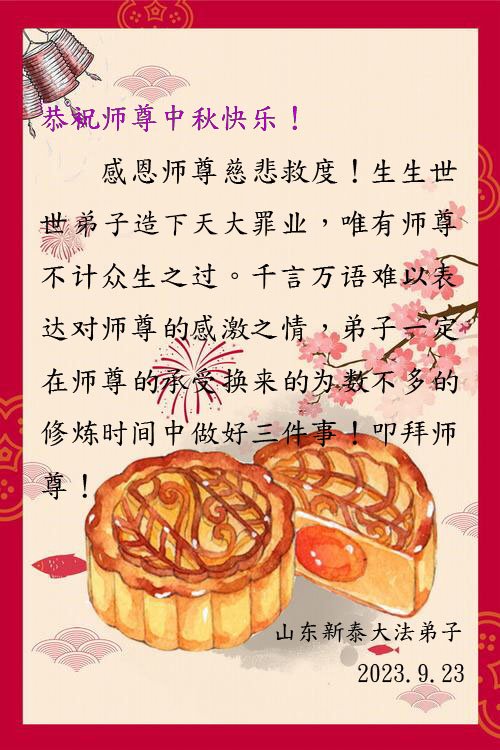 恭祝师尊中秋快乐！
感恩师尊慈悲救度！生生世
世弟子造下天大罪业，唯有师尊
不计众生之过。千言万语难以表
达对师尊的感激之情，弟子一定
在师尊的承受换来的为数不多的
修炼时间中做好三件事！叩拜师
尊！
山东新泰大法弟子
2023.9.23